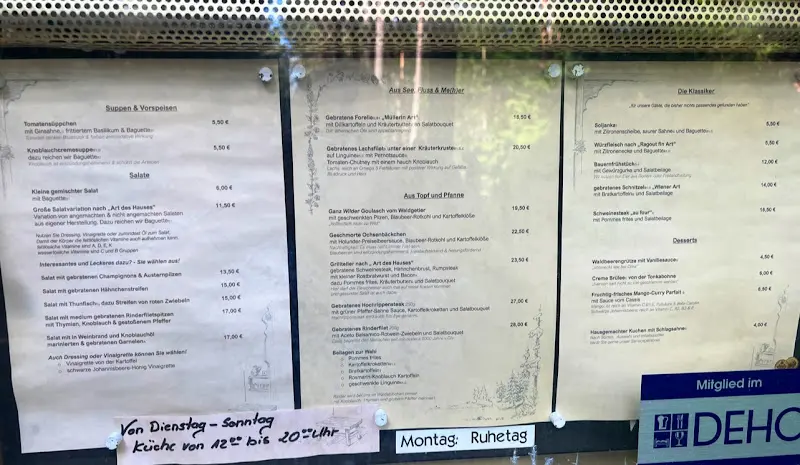 Suppen & Vorspeisen
Tomatensüppchen 5,50 €
mit Ginsahne, frittiertem Basilikum & Baguette
Knoblauchcremesuppe 5,50 €
dazu reichen wir Baguette
Salate
Kleine gemischter Salat 6,00 €
mit Baguette
Große Salatvariation nach „Art des Hauses" 11,50 €
Variation von angemachten & nicht angemachten Salaten
aus eigener Herstellung. Dazu reichen wir Baguette
Nutzen Sie Dressing, Vinaigrette oder zumindest Öl zum Salat,
Damit der Körper die fettlöslichen Vitamine auch aufnehmen kann.
fettlösliche Vitamine sind A, D, E, K
wasserlösliche Vitamine sind C und B Gruppen
Interessantes und Leckeres dazu? - Sie wählen aus!
Salat mit gebratenen Champignons & Austernpilzen 13,50 €
Salat mit gebratenen Hähnchenstreifen 15,00 €
Salat mit Thunfisch, dazu Streifen von roten Zwiebeln 15,00 €
Salat mit medium gebratenen Rinderfiletspitzen 17,00 €
mit Thymian, Knoblauch & gestoßenem Pfeffer
Salat mit in Weinbrand und Knoblauchöl 17,00 €
marinierten & gebratenen Garnelen
Auch Dressing oder Vinaigrette können Sie wählen!
Vinaigrette von der Kartoffel
schwarze Johannisbeere-Honig Vinaigrette
Aus See, Fluss & Me(h)er
Gebratenes Forelle „Müllerin Art"
mit Dillkartoffeln und Kräuterbutter an Salatbouquet
Gebratenes Lachsfilet unter einer Kräuterkruste 20,50 €
auf Linguine mit Pernodsauce
Tomaten-Chutney mit einem hauch Knoblauch
Aus Topf und Pfanne
Ganz Wilder Goulasch vom Weidgetier 19,50 €
mit geschwenkten Pilzen, Blaubeer-Rotkohl und Kartoffelklöße
Geschmorte Ochsenbäckchen 22,50 €
mit Holunder-Preiselbeersauce, Blaubeer-Rotkohl und Kartoffelklöße
Grillteller nach „Art des Hauses" 23,50 €
gebratene Schweinesteak, Hähnchenbrust, Rumpsteak
mit kleiner Rostbratwurst und Bacon
dazu Pommes frites, Kräuterbutter und Salatbouquet
Gebratenes Hochrippensteak 27,00 €
mit grüner Pfeffer-Sahne Sauce, Kartoffelkroketten und Salatbouquet
Gebratenes Rinderfilet 28,00 €
mit Aceto Balsamico Rotwein-Zwiebeln und Salatbouquet
Beilagen zur Wahl
Pommes frites
Kartoffelkroketten
Bratkartoffeln
Rosmarin-Knoblauch Kartoffel
geschwenkte Linguine
Die Klassiker
Soljanka 5,50 €
mit Zitronenscheibe, saurer Sahne und Baguette
Würzfleisch nach „Ragout fin Art" 5,50 €
mit Zitronenecke und Baguette
Bauernfrühstück 12,00 €
mit Gewürzgurke und Salatbeilage
gebratenes Schnitzel „Wiener Art 14,00 €
mit Bratkartoffeln und Salatbeilage
Schweinesteak „au four"
mit Pommes frites und Salatbeilage
Desserts
Waldbeerengrütze mit Vanillesauce 4,50 €
Creme Brûlee von der Tonkabohne 6,00 €
Fruchtig-frisches Mango-Curry Parfait
mit Sauce vom Cassis
Hausgemachter Kuchen mit Schlagsahne 4,00 €
Von Dienstag - Sonntag
Küche von 12⁰⁰ bis 20⁰⁰ Uhr
Montag: Ruhetag
Mitglied im
DEHO